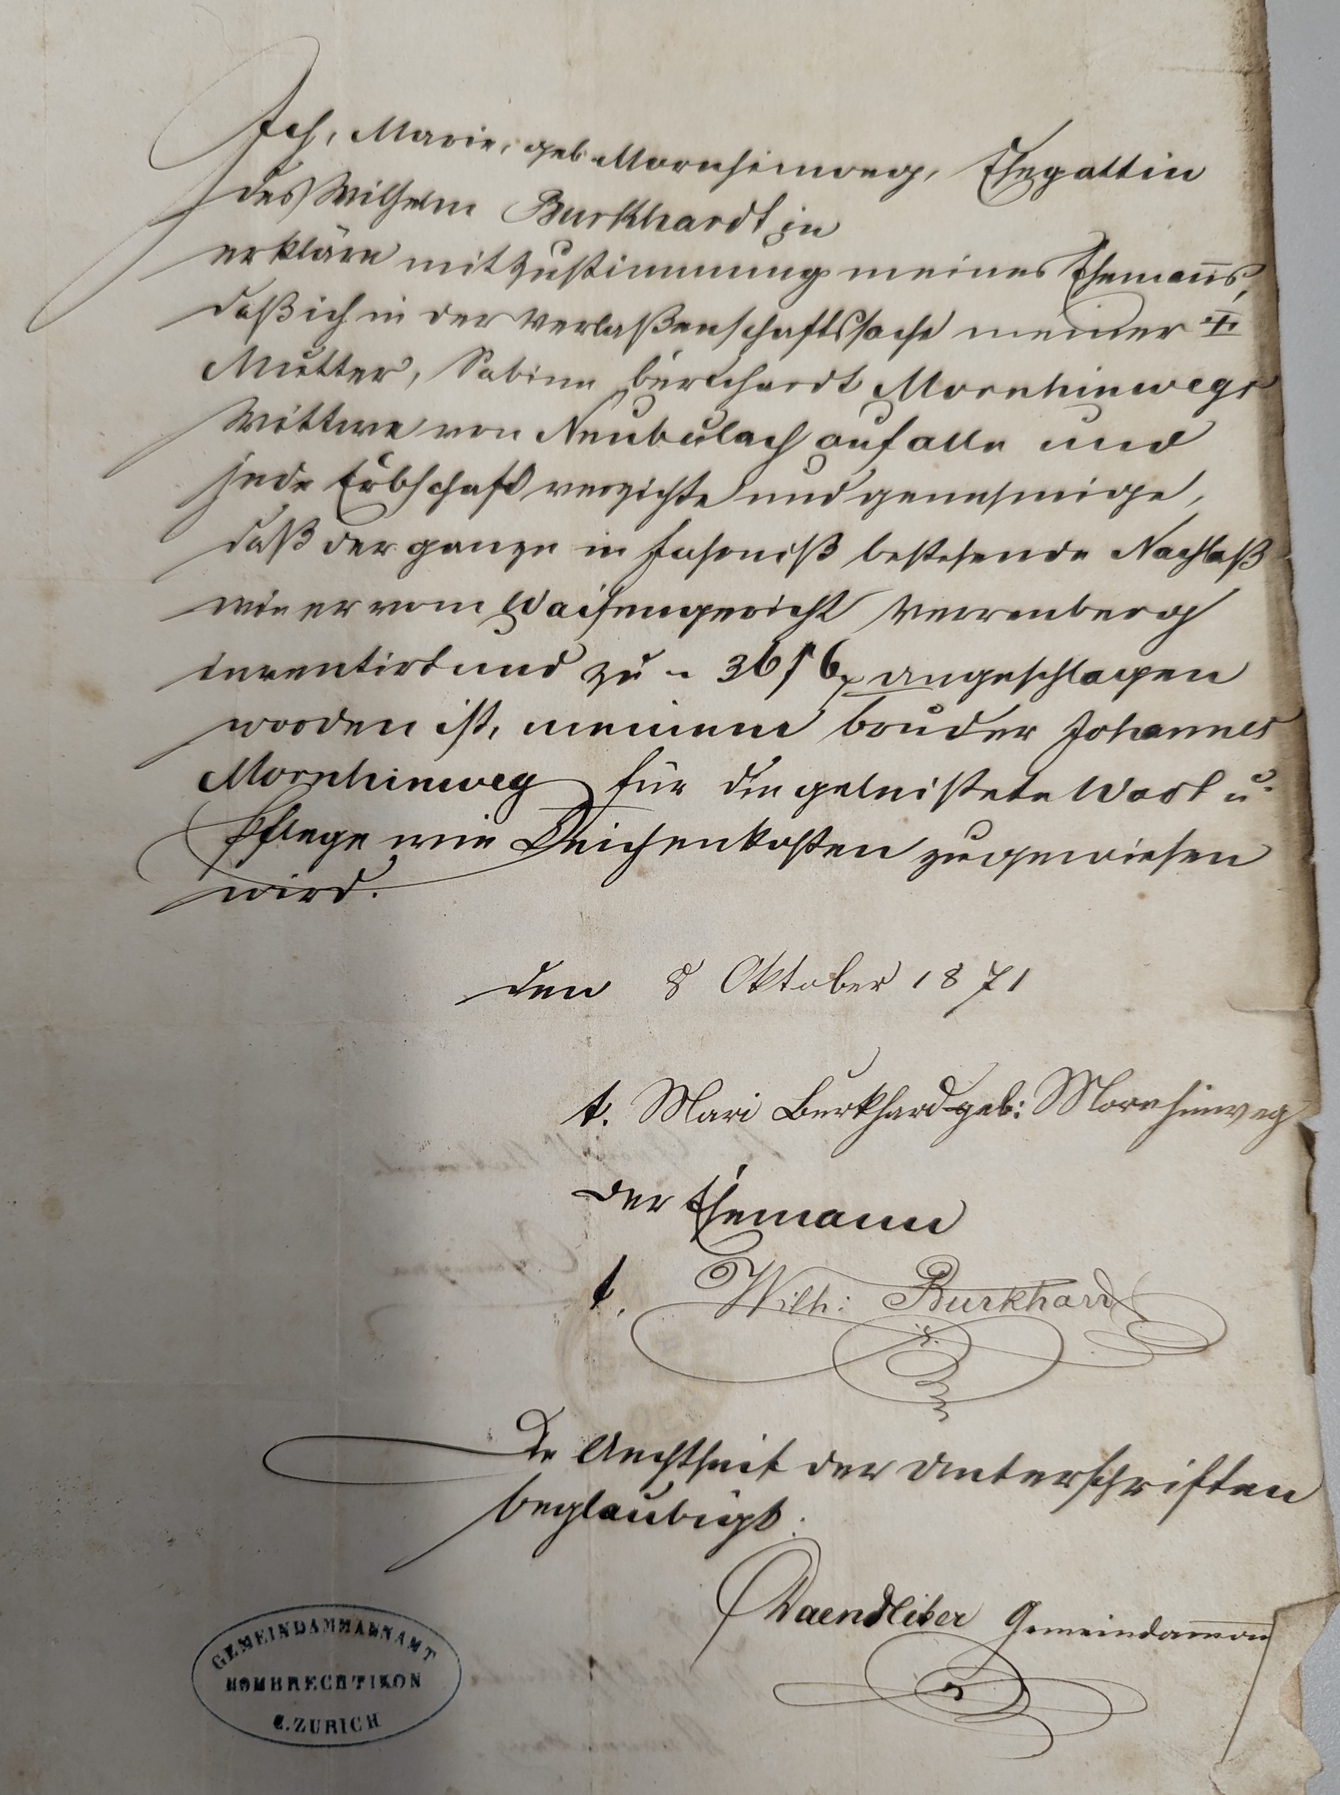 Ich, Marie, geb. Mornhinweg, Ehegattin
des Wilhelm Burkhardt in
erkläre mit Zustimmung meines Ehemanns,
daß ich in der Verlaßenschaftssache meiner
Mutter, Sabine Burkhardt Mornhinwegs
Wittwe von Neubulach auf alle und
jede Erbschaft verzichte und genehmige,
daß der ganze in Fahrniß bestehende Nachlaß
wie er vom Waisengericht Verrenberg
inventirt und zu angeschlagen
worden ist, meinem Bruder Johannes
Mornhinweg für die geleistete Wart u.
Pflege wie Leichenkosten zugewiesen
wird.
den 8 Oktober 1871
t. Mari Burkhard geb: Mornhinweg
Der Ehemann
t. Wilh: Burkhard
Die Aechtheit der Unterschriften
beglaubigt:
Daendliker Gemeindamman
GEMEINDAMMANNAMT
HOMBRECHTIKON
C. ZURICH